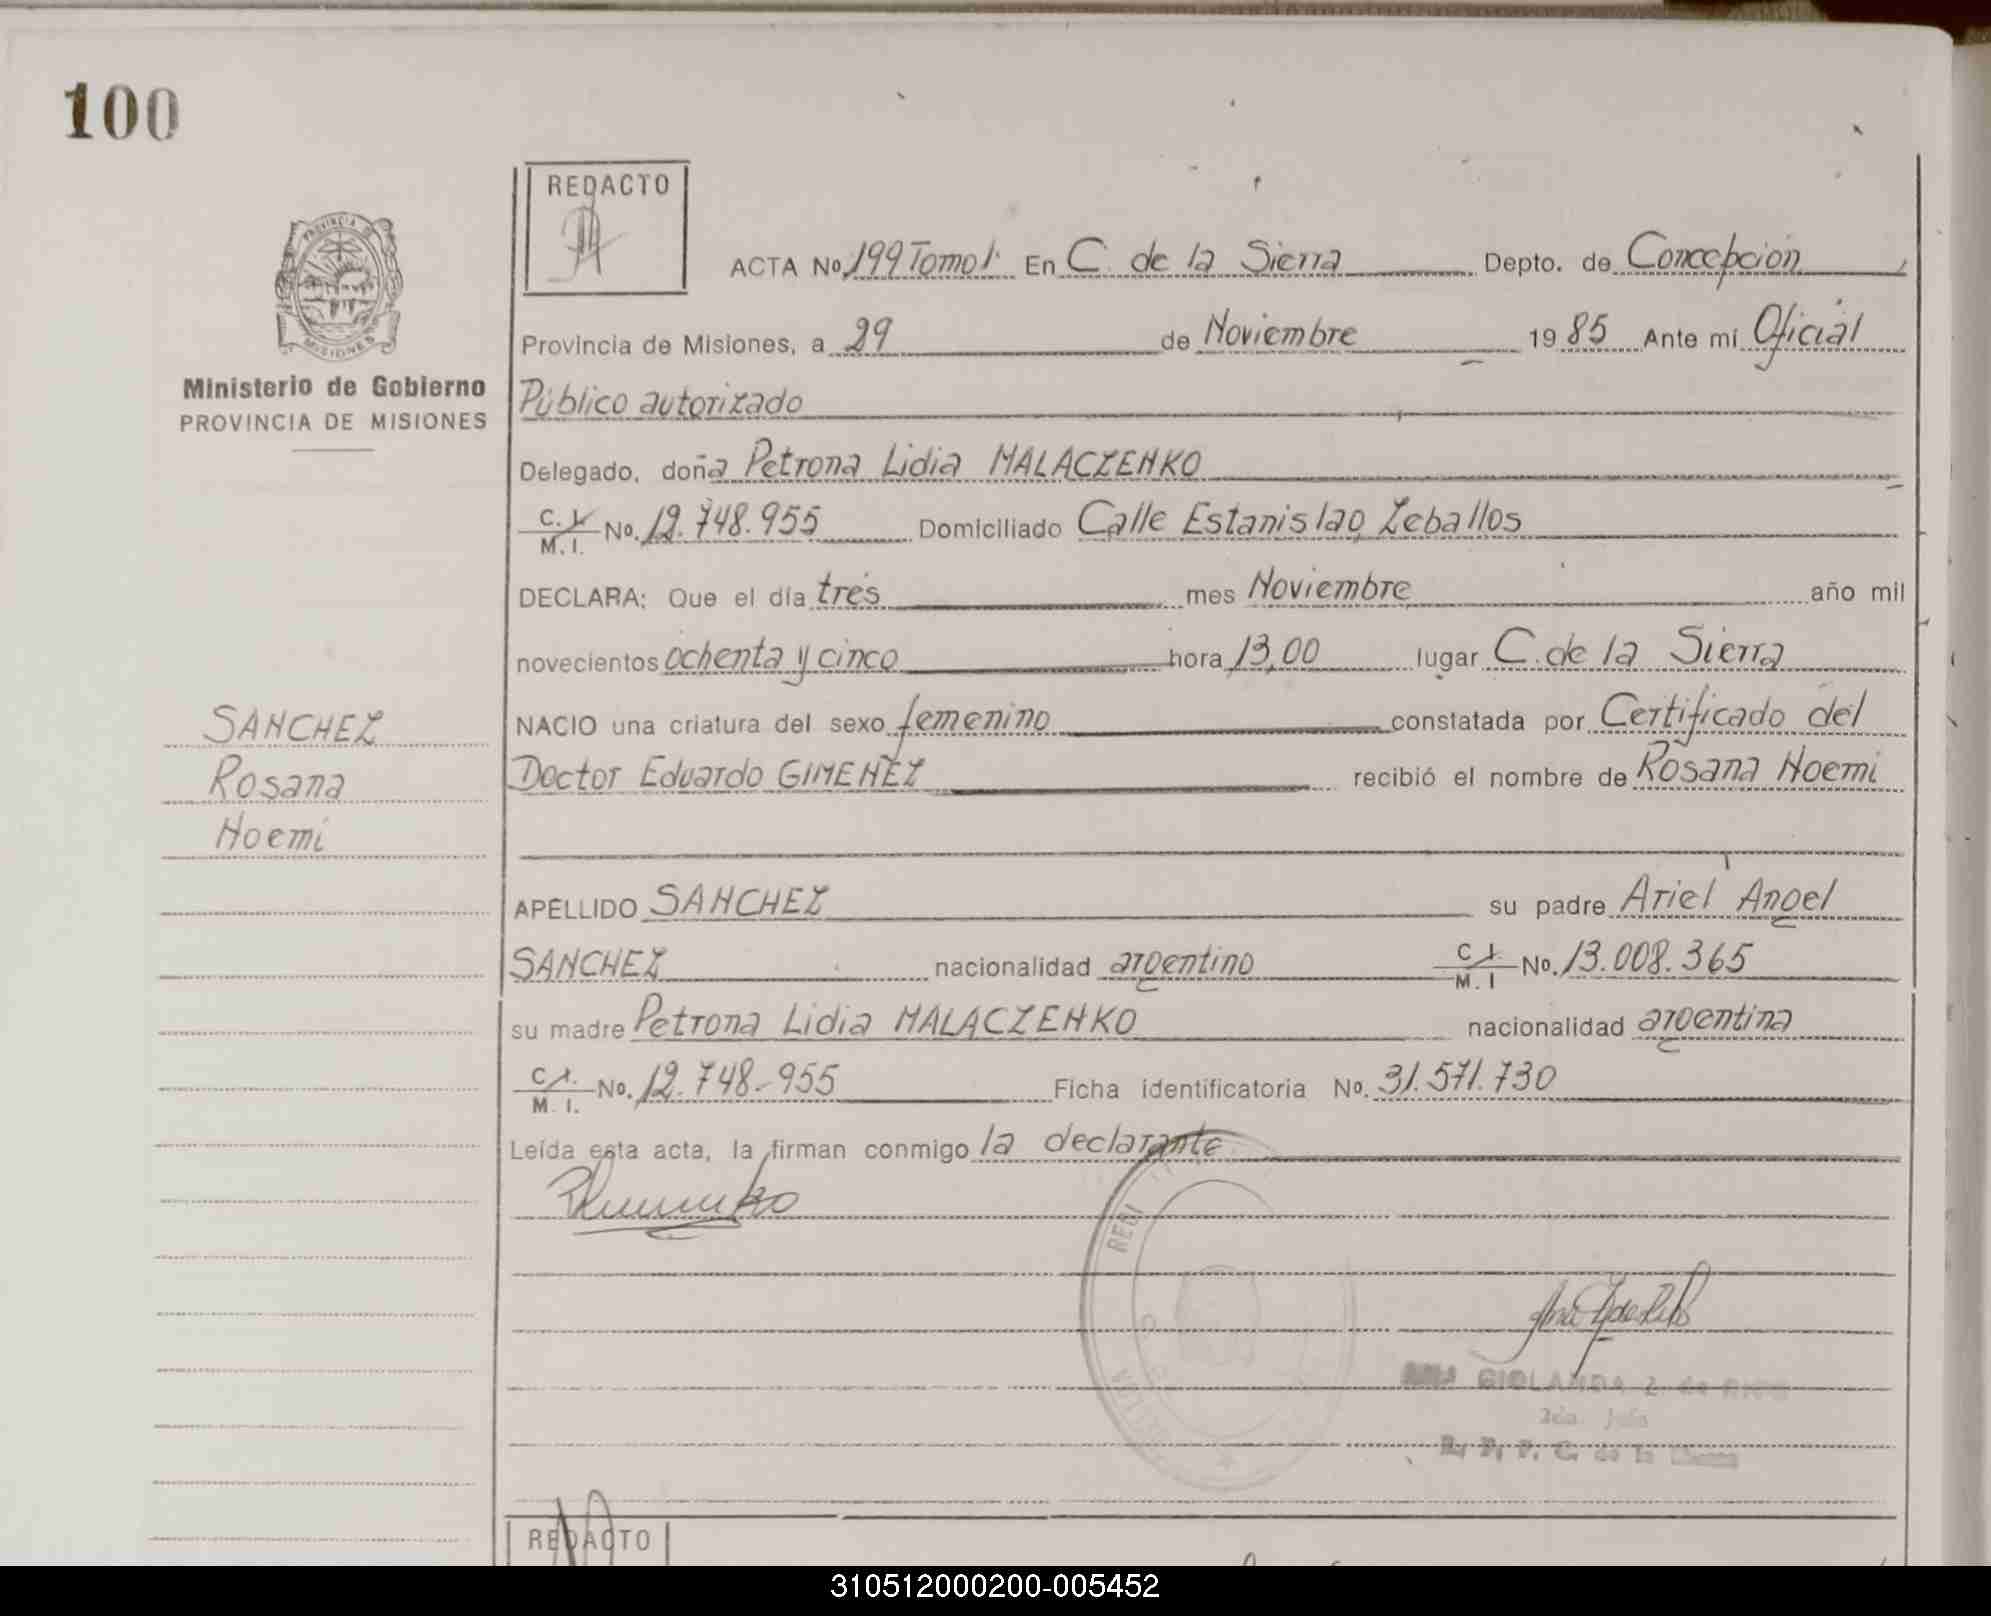 100
REDACTO
PROVINCIA DE
MISIONES
Ministerio de Gobierno
PROVINCIA DE MISIONES
ACTA No. 199 Tomo I. En C. de la Sierra Depto. de Concepción
Provincia de Misiones, a 29 de Noviembre 1985 Ante mí Oficial
Público autorizado
Delegado, doña Petrona Lidia MALACZENKO
C. I. M. I. No. 12.748.955 Domiciliado Calle Estanislao Zeballos
DECLARA: Que el día tres mes Noviembre año mil
novecientos ochenta y cinco hora 13,00 lugar C. de la Sierra
NACIO una criatura del sexo femenino constatada por Certificado del
Doctor Eduardo GIMENEZ recibió el nombre de Rosana Noemi
SANCHEZ
Rosana
Noemí
APELLIDO SANCHEZ su padre Ariel Angel
SANCHEZ nacionalidad argentino C. I. M. I No. 13.008.365
su madre Petrona Lidia MALACZENKO nacionalidad argentina
C. I. M. I. No. 12.748.955 Ficha identificatoria No. 31.571.730
Leída esta acta, la firman conmigo la declarante
GIOLANDA Z. de
R. P. P. C. de la Sierra
REDACTO
310512000200-005452